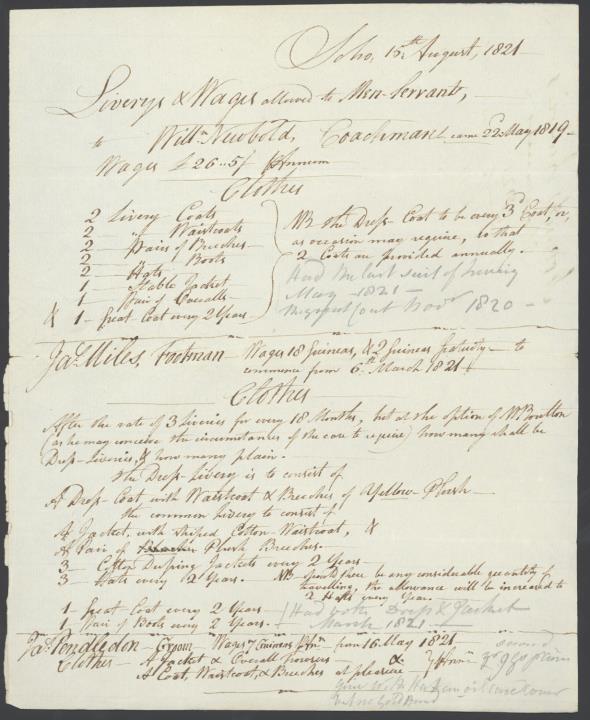 Soho, 15th August, 1821
Liverys & Wages allowed to Men-Servants,
to Willm Newbold, Coachman came 22d May 1819
Wages £26..5/ P Annum
Clothes
2 Livery Coats
2 " Waistcoats
2 Pairs of Breeches
2 " Boots
2 Hats
1 Stable Jacket
1 Pair of Overalls
& 1 Great Coat every 2 Years
NB the Dress Coat to be every 3d Coat, or,
as occasion may require, so that
2 Coats are provided annually.
Had the last suit of livery
May 1821
The great Coat Novr 1820
Jas. Miles, Footman Wages 18 Guineas, & 2 Guineas gratuity to
commence from 6th March 1821
Clothes
After the rate of 3 Liveries for every 18 Months, but at the option of Mr. Boulton
(as he may conceive the circumstances of the case to require) how many shall be
Dress Liveries, & how many plain.
the Dress Livery is to consist of
A Dress Coat with Waistcoat & Breeches of Yellow Plush
the common Livery to consist of
A Jacket, with striped Cotton Waistcoat, &
A Pair of Plush Breeches.
3 Cotton Jackets every 2 Years
3 Hats every 2 Years. NB should there be any considerable quantity of
travelling, the allowance will be increased to
2 Hats every Year.
1 Great Coat every 2 Years
1 Pair of Boots every 2 Years.
Had with Dress & Jacket
March 1821
Jas. Pendledon Groom Wages 7 Guineas P Ann from 16 May 1821
Clothes A Jacket & Overall trousers &
A Coat, Waistcoat, & Breeches at pleasure
second